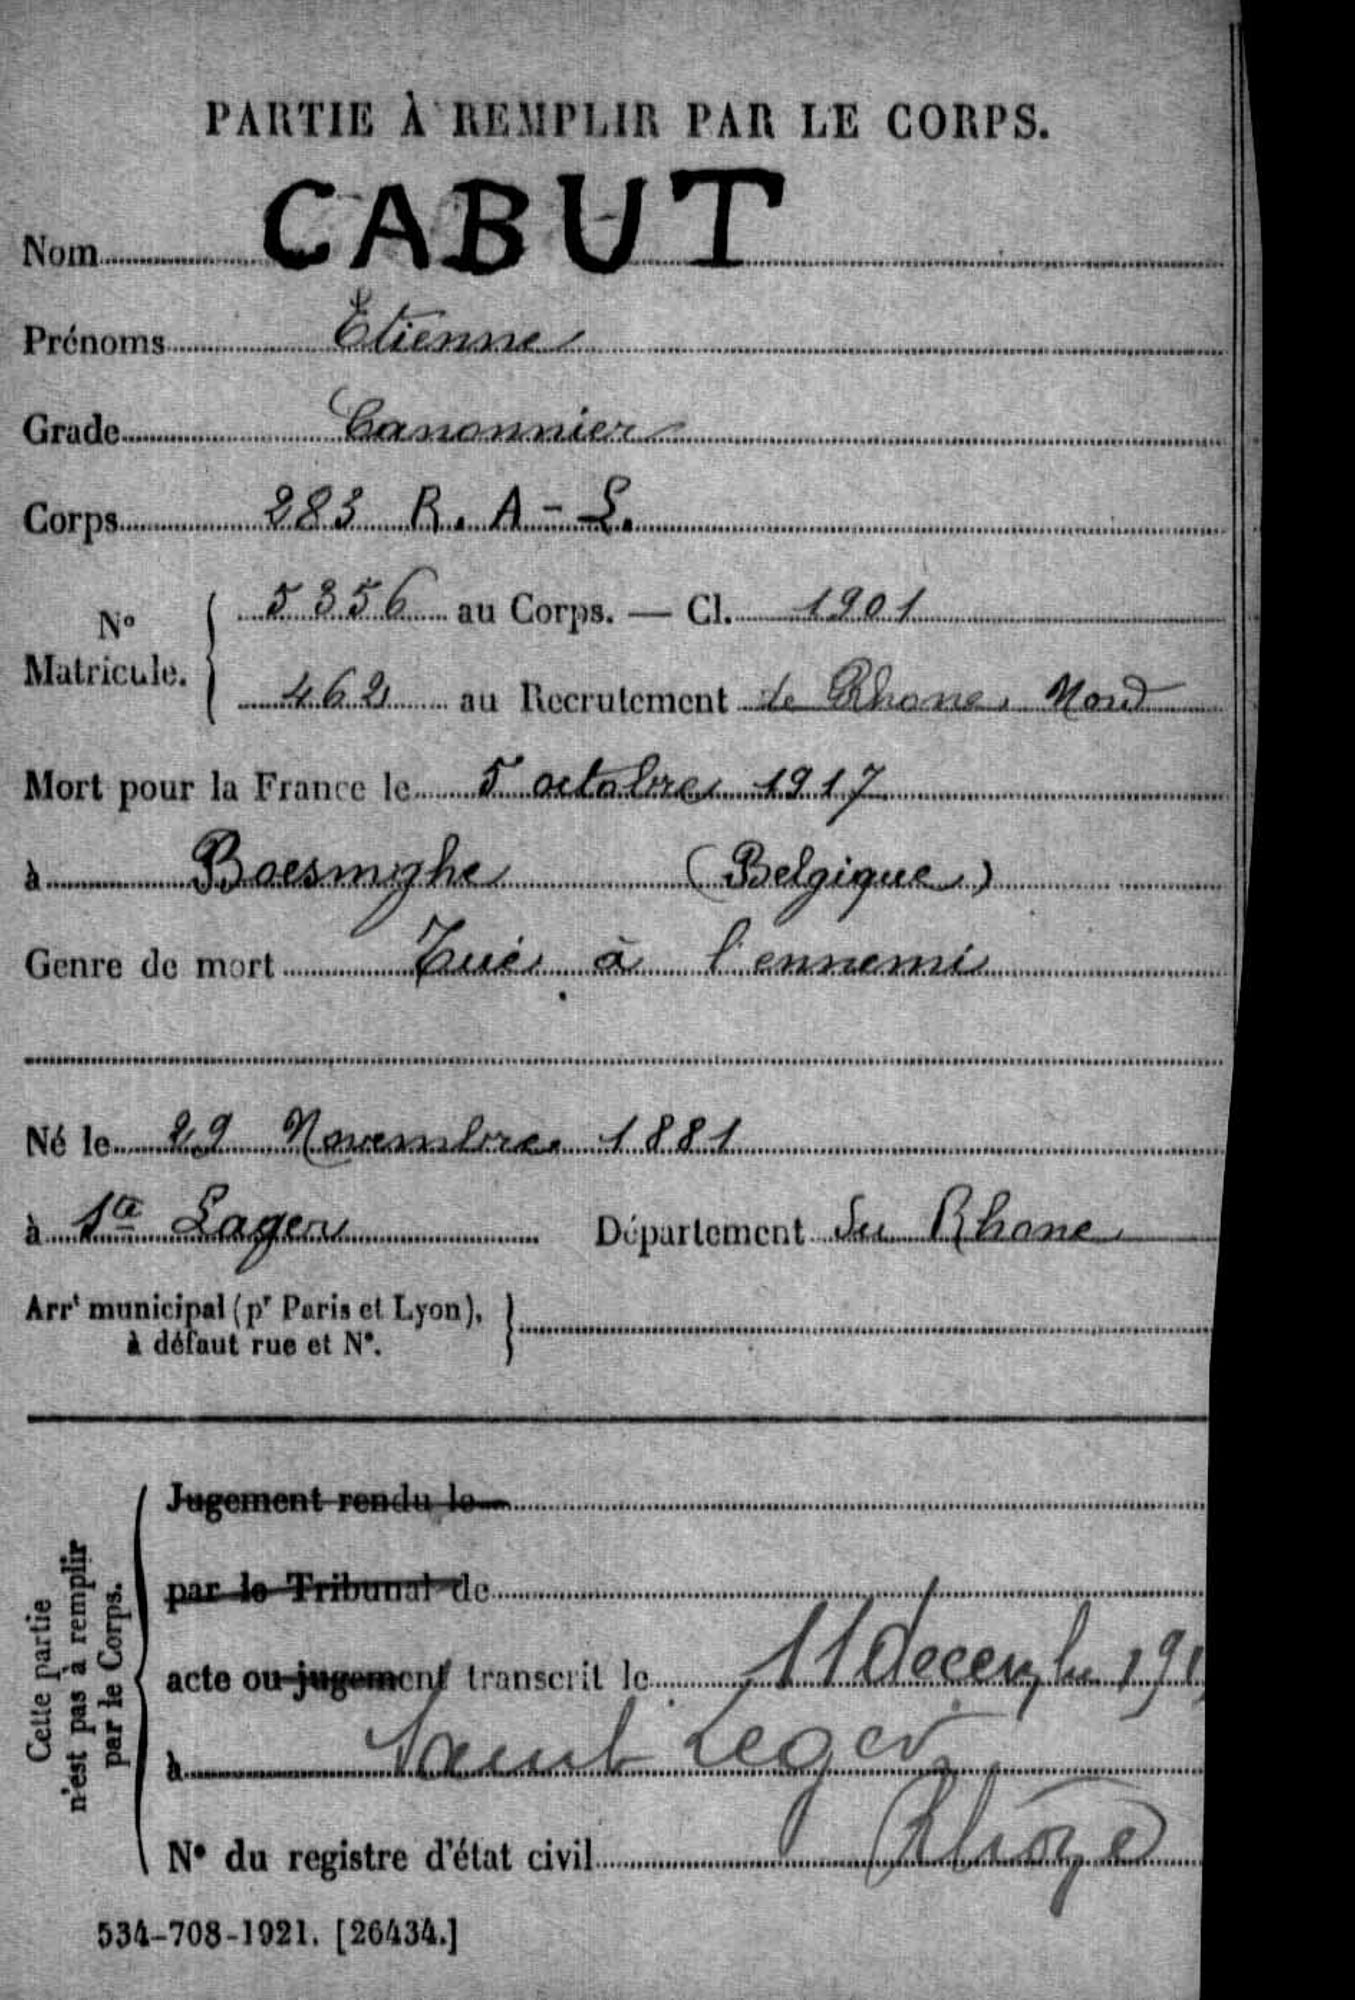 PARTIE À REMPLIR PAR LE CORPS.
Nom CABUT
Prénoms Etienne
Grade Canonnier
Corps 283 R. A - L.
N° Matricule. 5356 au Corps. — Cl. 1901
462 au Recrutement de Rhone Nord
Mort pour la France le 5 octobre 1917
à Boesinghe (Belgique)
Genre de mort Tué à l'ennemi
Né le 29 Novembre 1881
à Ste Lager Département du Rhone
Arrt municipal (pr Paris et Lyon),
à défaut rue et N°.
Cette partie
n'est pas à remplir
par le Corps.
Jugement rendu le
par le Tribunal de
acte ou jugement transcrit le 11 decembre 191
à Saint Leger
Rhone
N° du registre d'état civil
534-708-1921. [26434.]